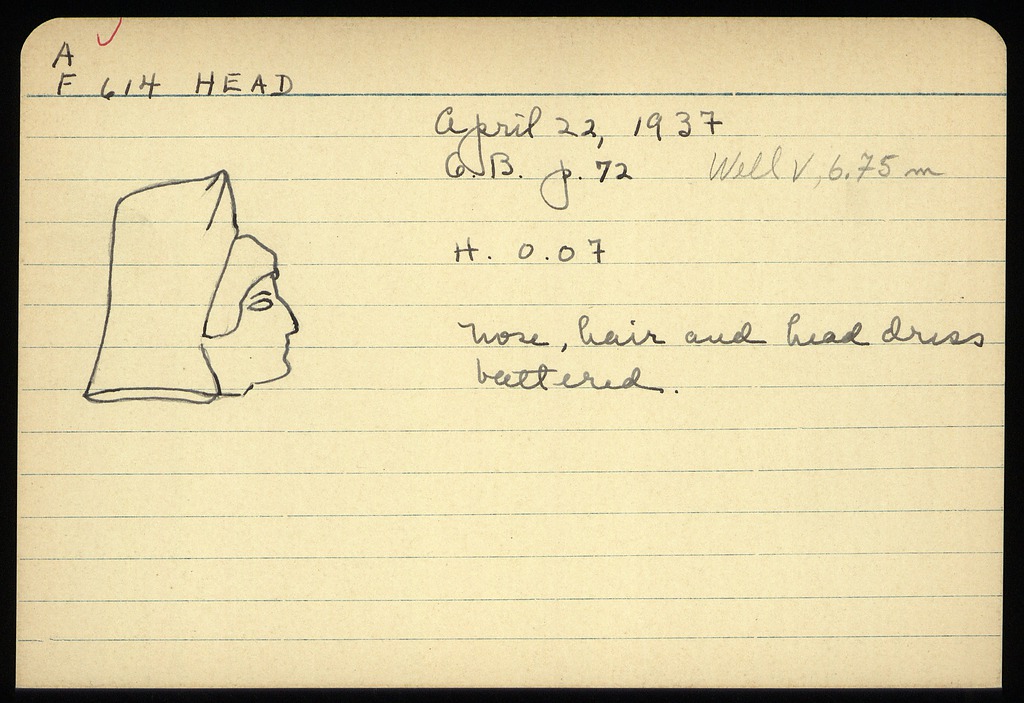 A
F 614 HEAD
April 22, 1937
G.B. p. 72 Well V, 6.75 m
H. 0.07
Nose, hair and head dress
battered.